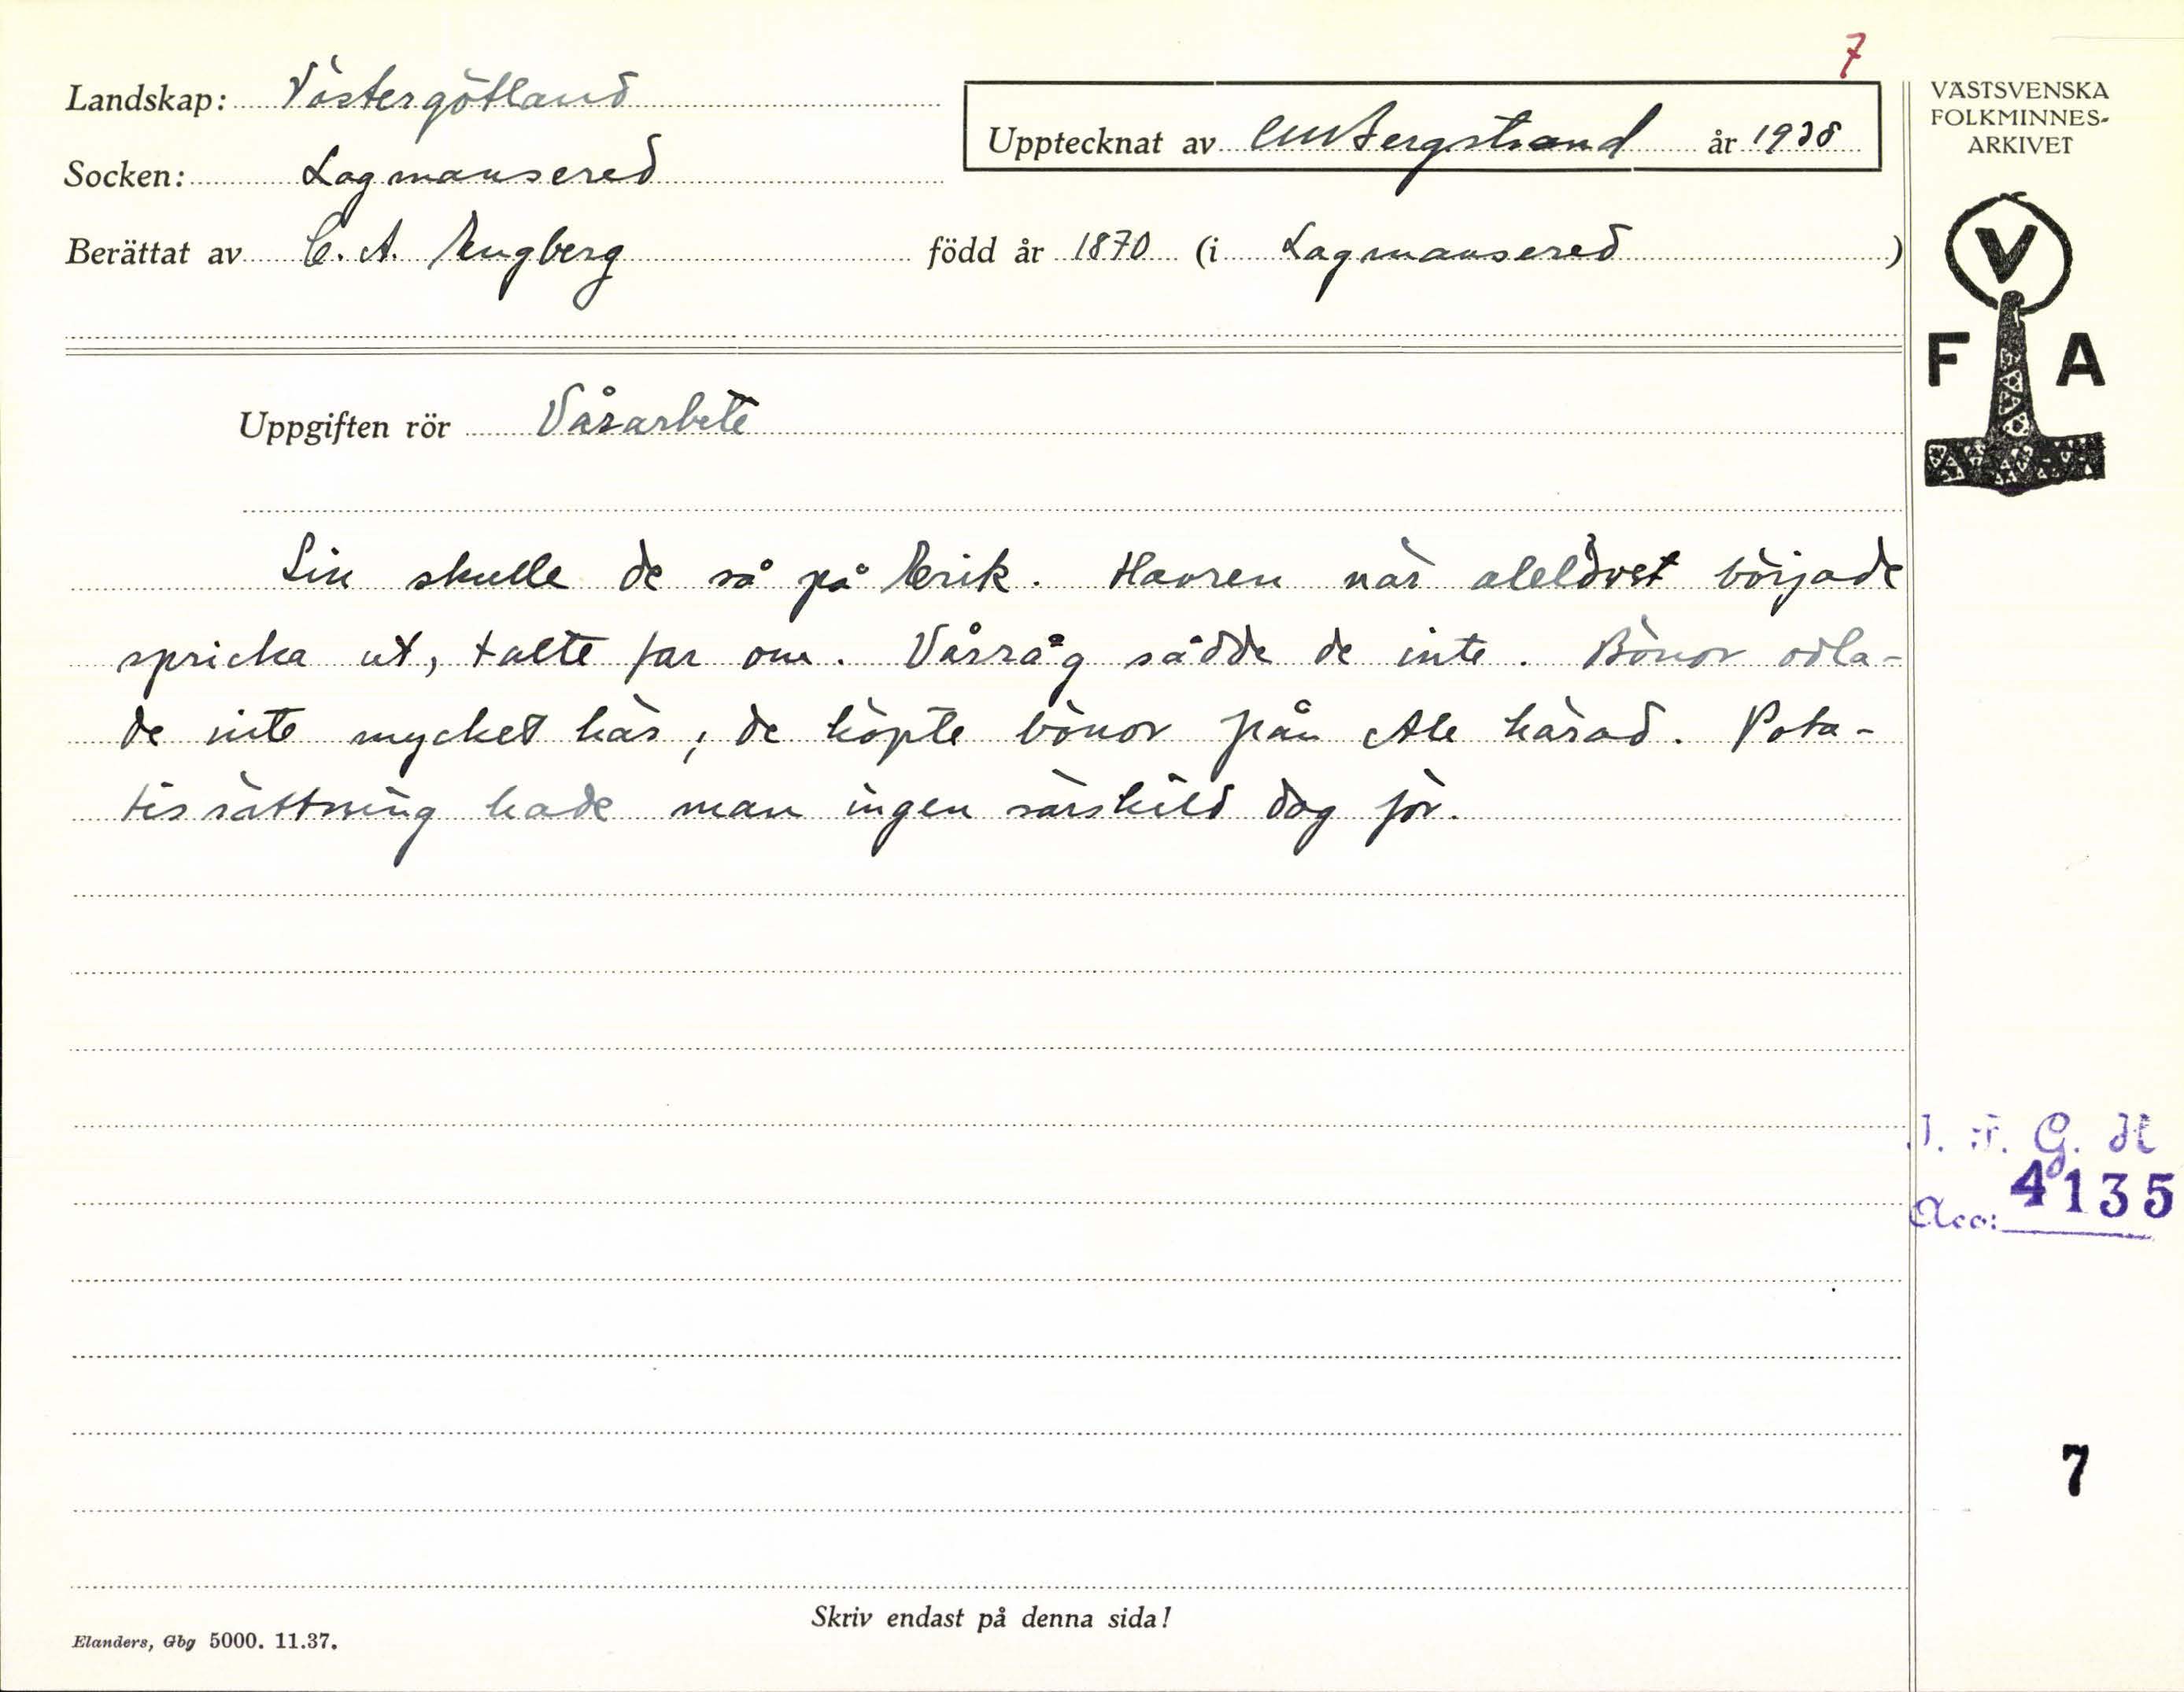 7
Landskap: Västergötland
Upptecknat av CMBergstrand år 1938
VÄSTSVENSKA
FOLKMINNES-
ARKIVET
Socken: Lagmansered
Berättat av C. A. Engberg född år 1870 (i Lagmansered)
V
F A
Uppgiften rör Vårarbete
Lin skulle de så på Erik. Havren när alelövet började
spricka ut, talte far om. Vårråg sådde de inte. Bönor odla-
de inte mycket här, de köpte bönor från Ale härad. Pota-
tissättning hade man ingen särskild dag för.
I. F. G. H
Acc: 4135
7
Skriv endast på denna sida!
Elanders, Gbg 5000. 11.37.